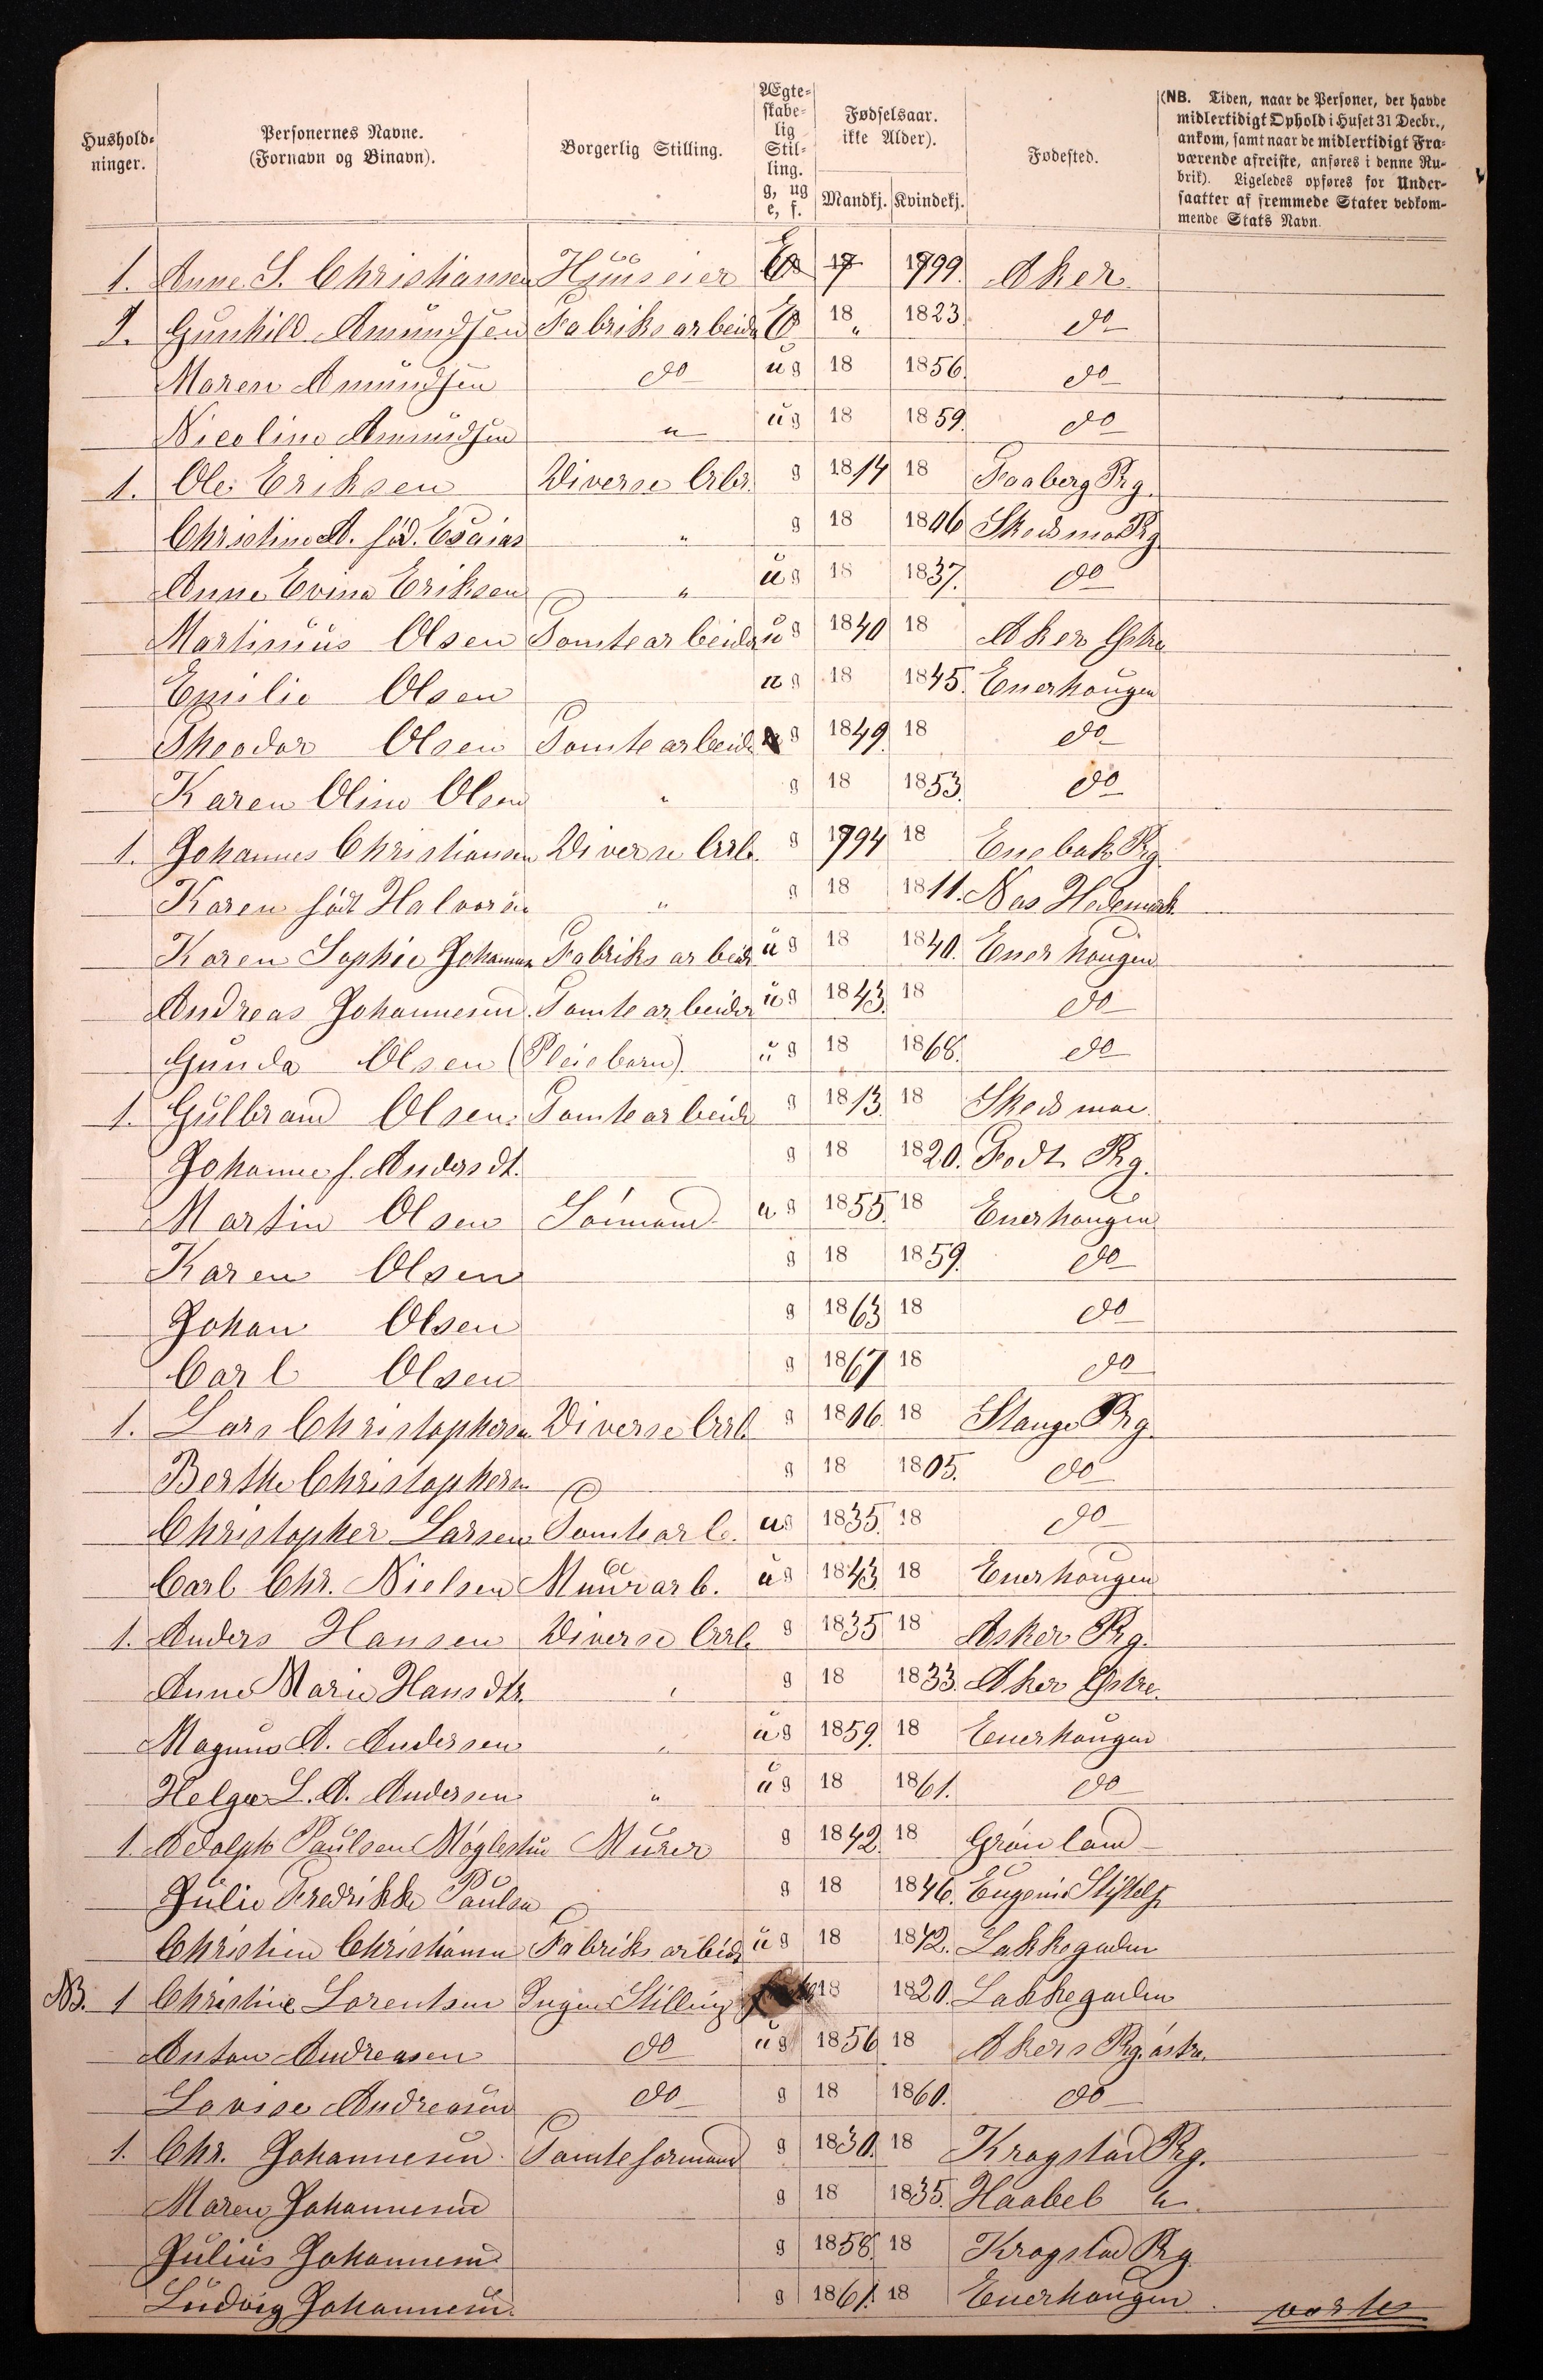 Hushold-
ninger.
Personernes Navne.
(Fornavn og Binavn).
Borgerlig Stilling.
Ægte-
skabe-
lig
Stil-
ling.
g, ug
e, f.
Fødselsaar.
ikke Alder).
Mandkj. Kvindekj.
Fødested.
(NB. Tiden, naar de Personer, der havde
midlertidigt Ophold i Huset 31 Decbr.,
ankom, samt naar de midlertidigt Fra-
værende afreiste, anføres i denne Ru-
brik). Ligeledes opføres for Under-
saatter af fremmede Stater vedkom-
mende Stats Navn.
1. Anne S. Christiansen Huuseier E 17 1799. Aker.
1. Gunhild Amundsen Fabriksarbeid E 18 " 1823. do
Maren Amundsen do ug 18 1856. do
Nicoline Amundsen " ug 18 1859. do
1. Ole Eriksen Diverse Arb. g 1814 18 Faaberg Prg.
Christine A. föd. Esaias " g 18 1806 Skedsmo Prg
Anne Evina Eriksen " ug 18 1837. do
Martinius Olsen Tomtearbeider ug 1840 18 Aker Østre
Emilie Olsen ug 18 1845. Enerhougen
Theodor Olsen Tomtearbeid g 1849. 18 do
Karen Oline Olsen " g 18 1853. do
1. Johannes Christiansen Diverse Arb. g 1794 18 Enebak Prg
Karen födt Halvorsen " g 18 1811. Næs Hedemark
Karen Sophie Johannesn Fabriksarbeid ug 18 1840. Enerhougen
Andreas Johannesen. Tomtearbeider ug 1843. 18 do
Gunda Olsen (Pleiebarn) ug 18 1868. do
1. Gulbrand Olsen. Tomtearbeid g 1813. 18 Skedsmoe.
Johanne f. Andersdt. g 18 1820. Fodt Prg.
Martin Olsen Sömand ug 1855. 18 Enerhougen
Karen Olsen g 18 1859. do
Johan Olsen g 1863 18 do
Carl Olsen g 1867 18 do
1. Lars Christophersen Diverse Arb g 1806. 18 Stange Prg.
Berthe Christophersen g 18 1805. do
Christopher Larsen Tomtearb. ug 1835. 18 do
Carl Chr. Nielsen Muurarb. ug 1843. 18 Enerhougen
1. Anders Hansen Diverse Arb g 1835 18 Asker Prg.
Anne Marie Hansdtr. " g 18 1833. Aker Østre.
Magnus A. Andersen " ug 1859. 18 Enerhougen
Helga L. A. Andersen " ug 18 1861. do
1. Adolph Paulsen Möglestue Murer g 1842. 18 Grönland
Julie Fredrikke Paulsen g 18 1846. Eugenie Stiftelse
Christine Christiansen Fabriksarbeid ug 18 1842. Lakkegaden
NB. 1 Christine Lorentsen Ingen Stilling 18 1820. Lakkegaden
Anton Andreasen do ug 1856 18 Akers Prg. östre.
Lovise Andreasen do g 18 1860. do
1. Chr. Johannesen. Tomteformand g 1830. 18 Kragstad Prg.
Maren Johannesen g 18 1835. Haabel
Julius Johannesen. g 1858. 18 Kragstad Prg
Ludvig Johannesen. g 1861. 18 Enerhougen